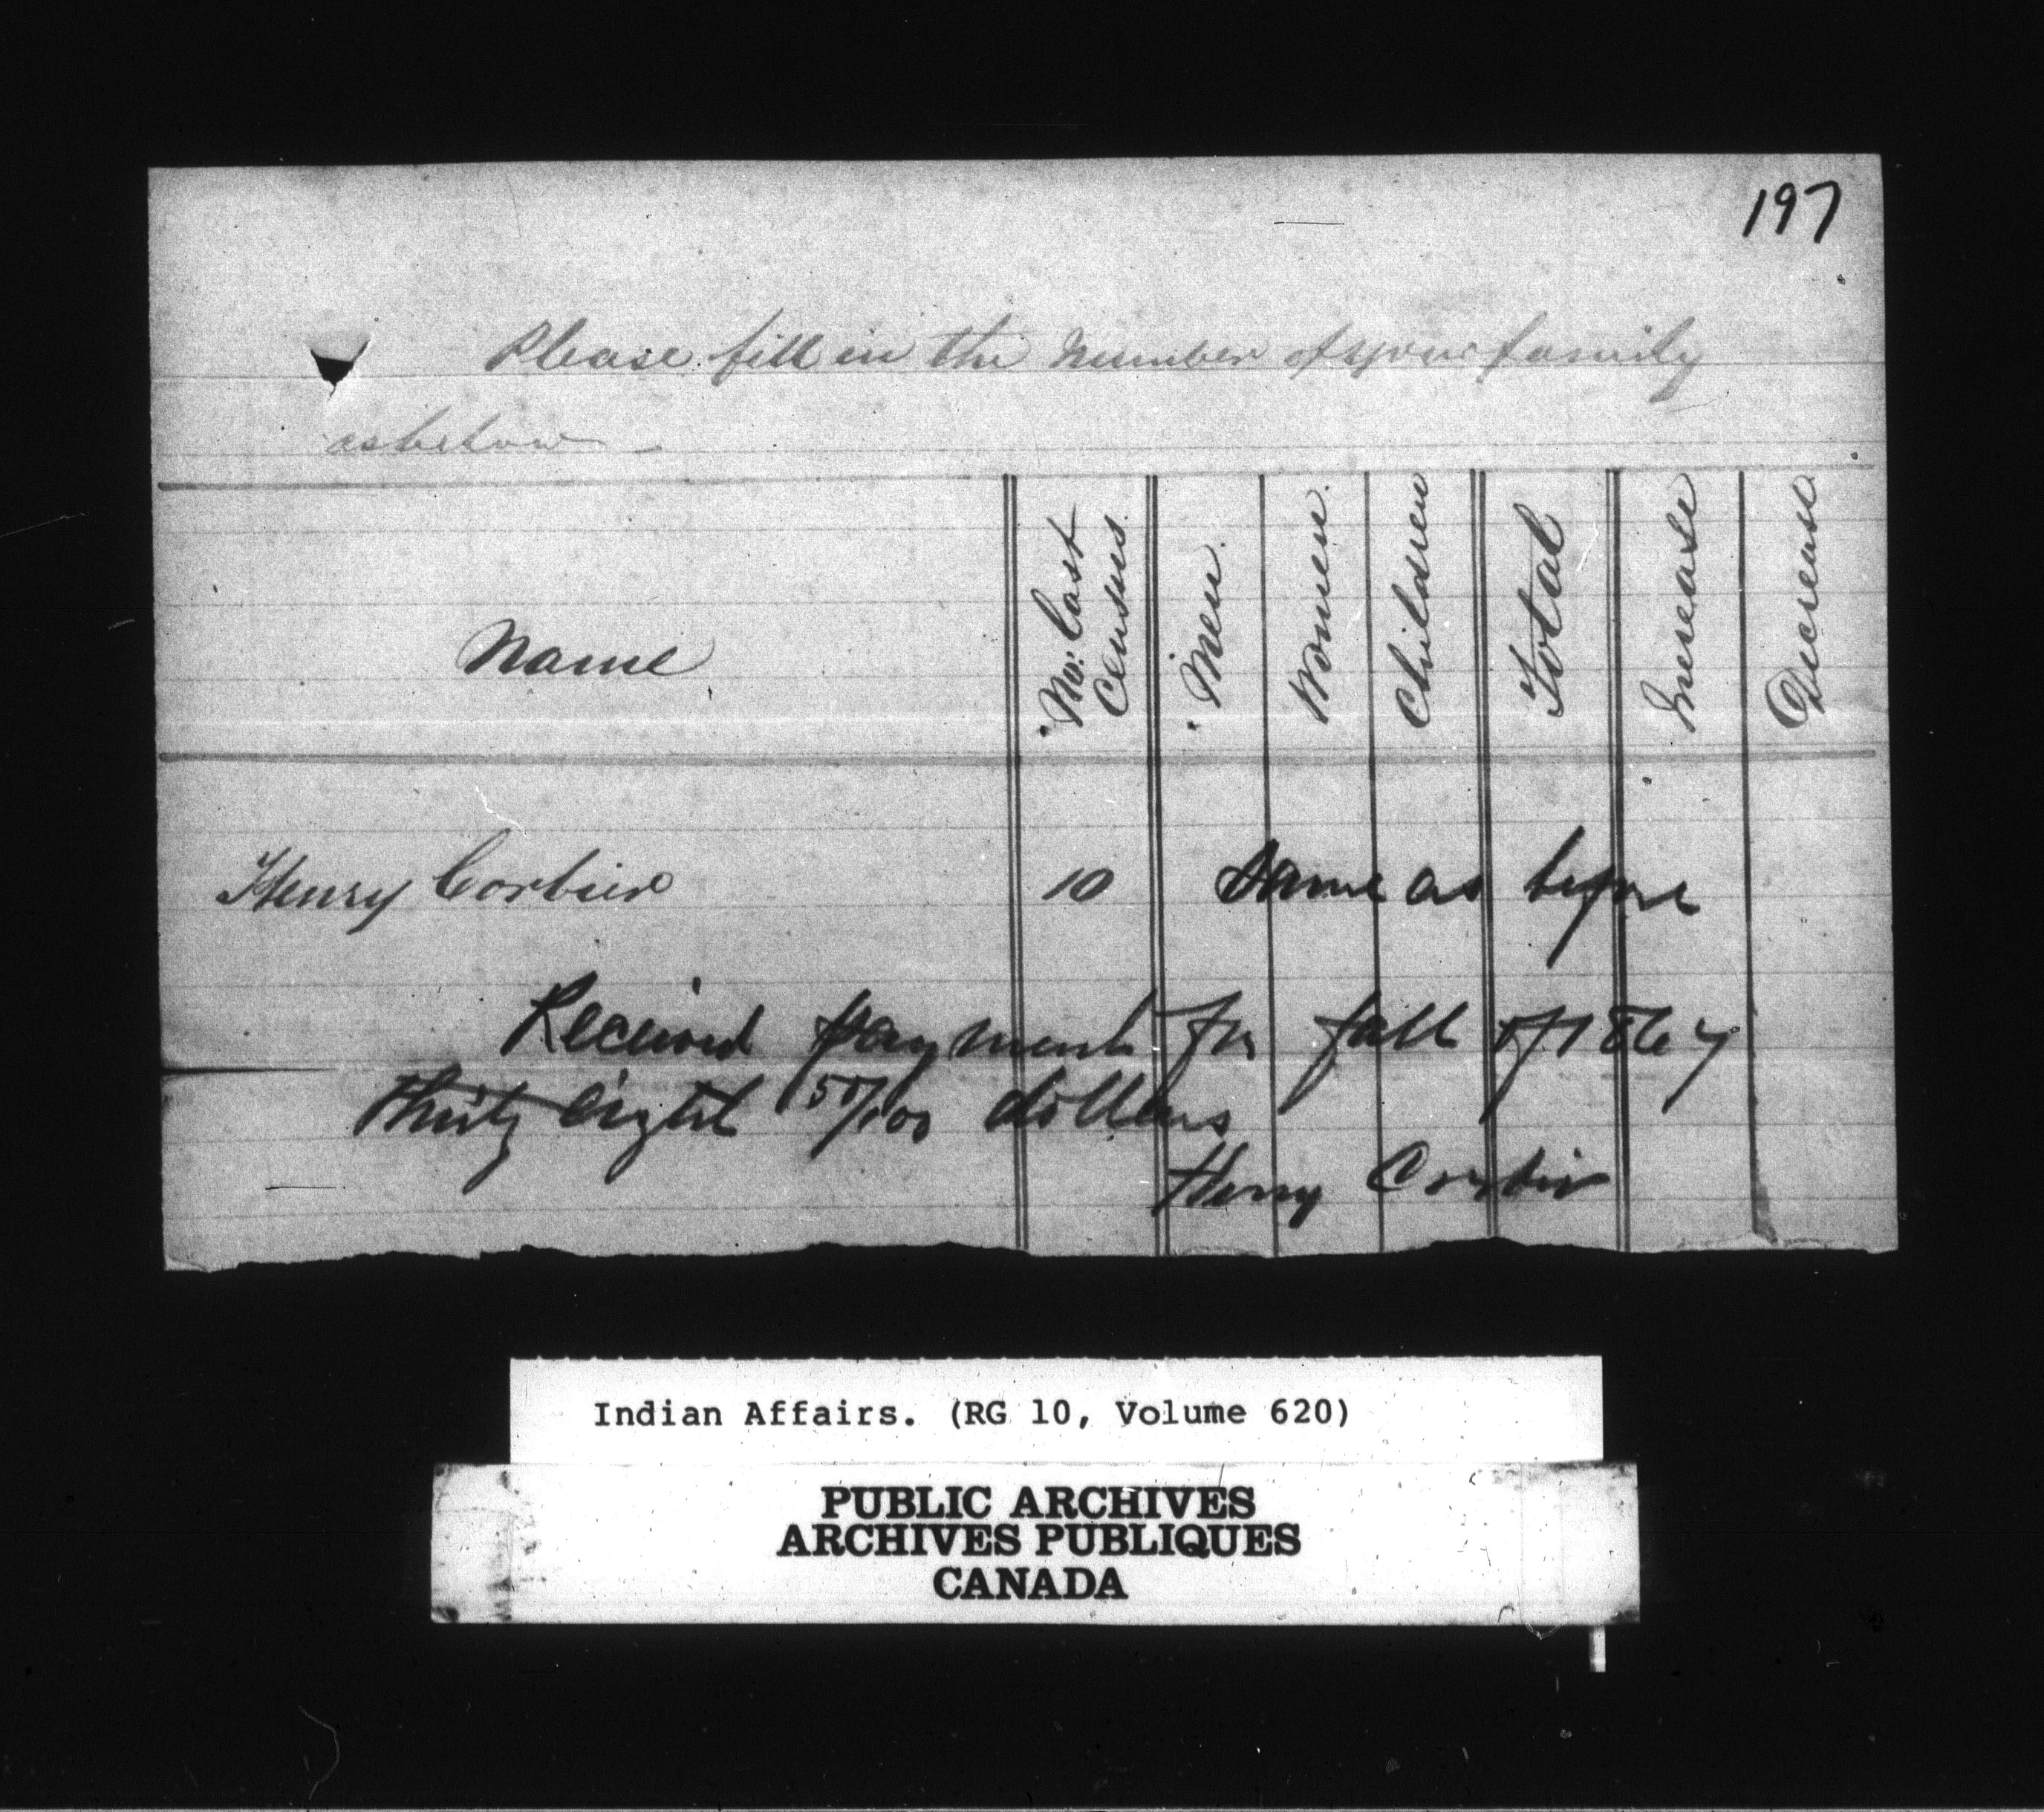 197
Please fill in the Number of your family
as below -
Name
No. Last Census
Men
Women
Children
Total
Increase
Decrease
Henry Corbier 10 Same as before
Received payment for fall of 1867
thirty eight 50/100 dollars
Henry Corbier
Indian Affairs. (RG 10, Volume 620)
PUBLIC ARCHIVES
ARCHIVES PUBLIQUES
CANADA